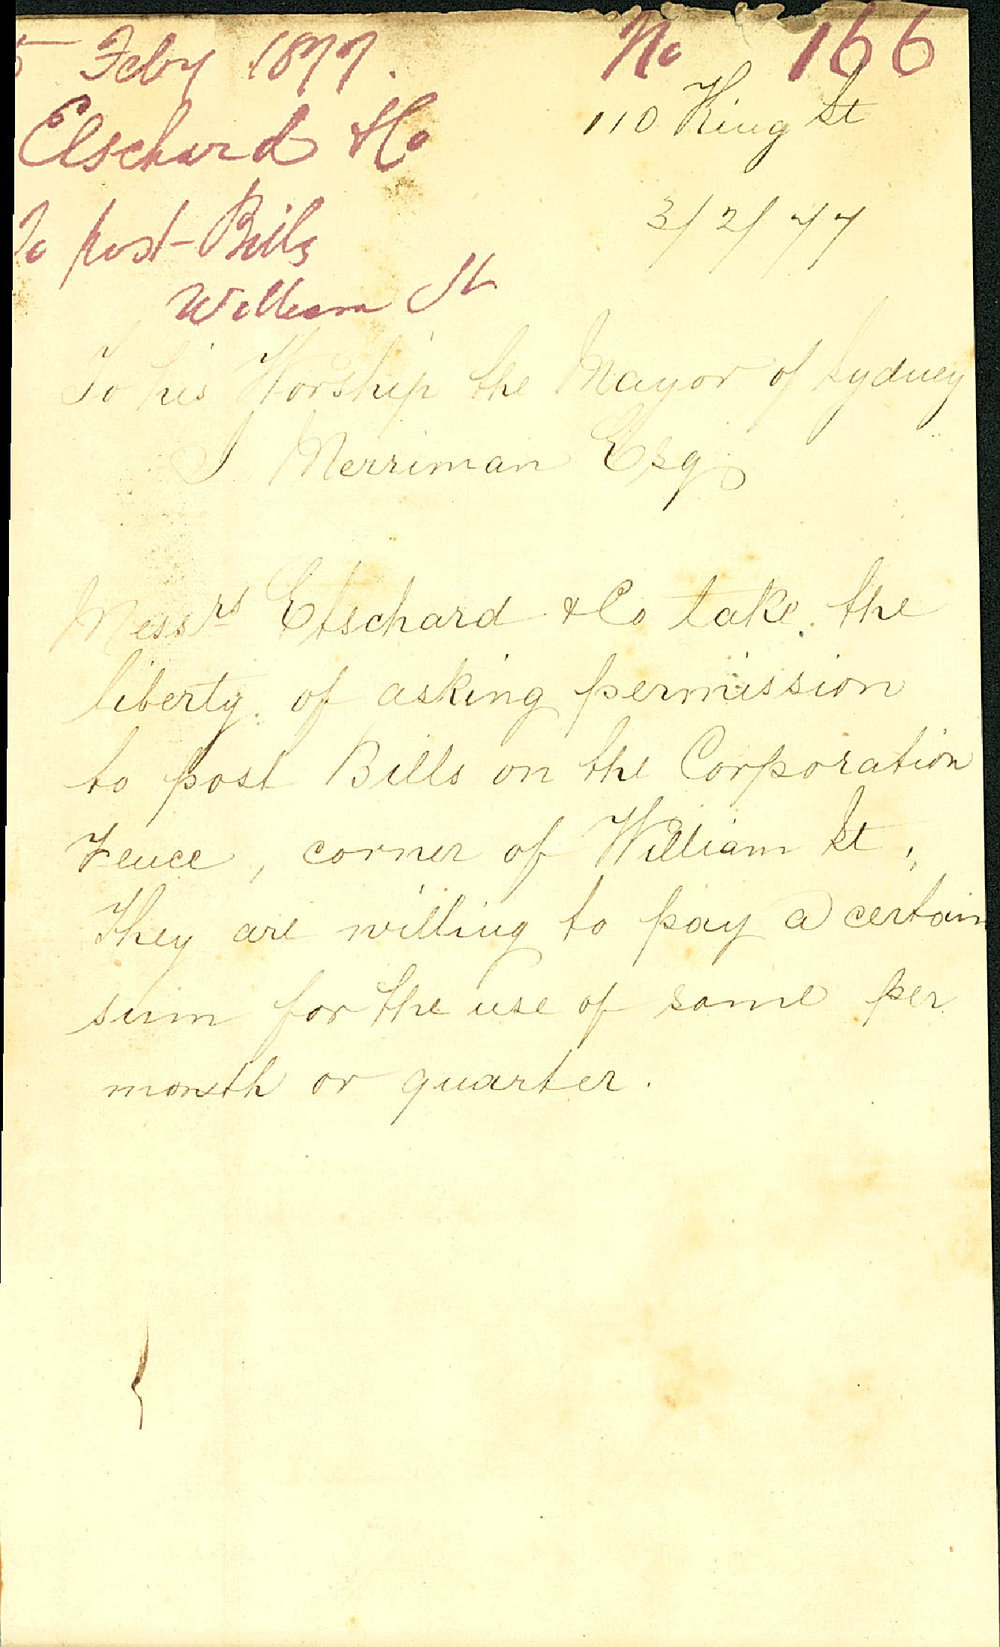 5 Feby 1877.
No 166
Elschard & Co
To post Bills
William St
110 King St
3/2/77
To his Worship the Mayor of Sydney
J Merriman Esq
Messrs Elschard & Co take the
liberty of asking permission
to post Bills on the Corporation
Fence, corner of William St,
They are willing to pay a certain
sum for the use of same per
month or quarter.